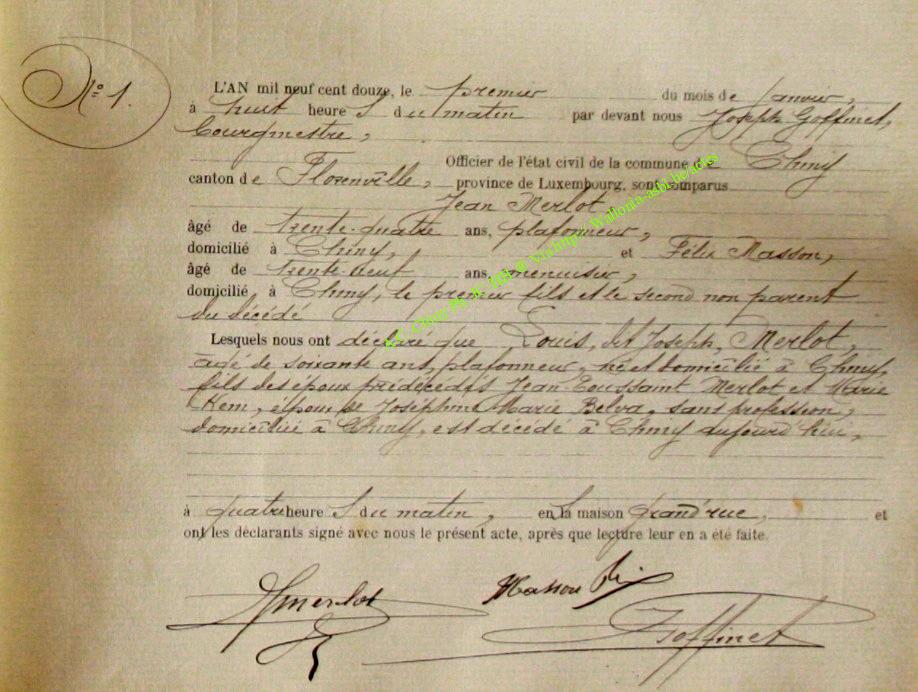 N° 1.
L'AN mil neuf cent douze, le premier du mois de janvier,
à huit heures du matin par devant nous Joseph Goffinet,
bourgmestre,
Officier de l'état civil de la commune de Chiny
canton de Florenville, province de Luxembourg, sont comparus
Jean Merlot
âgé de trente-quatre ans, plafonneur,
domicilié à Chiny, et Félix Masson,
âgé de trente-neuf ans, menuisier,
domicilié à Chiny, le premier fils et le second non parent
du décédé
Lesquels nous ont déclaré que Louis, dit Joseph, Merlot,
âgé de soixante ans, plafonneur, né et domicilié à Chiny,
fils des époux prédécédés Jean Toussaint Merlot et Marie
Hem, époux de Joséphine Marie Belva, sans profession,
domiciliée à Chiny, est décédé à Chiny aujourd'hui,
à quatre heures du matin, en sa maison Grand'rue, et
ont les déclarants signé avec nous le présent acte, après que lecture leur en a été faite.
JMerlot Masson
Goffinet